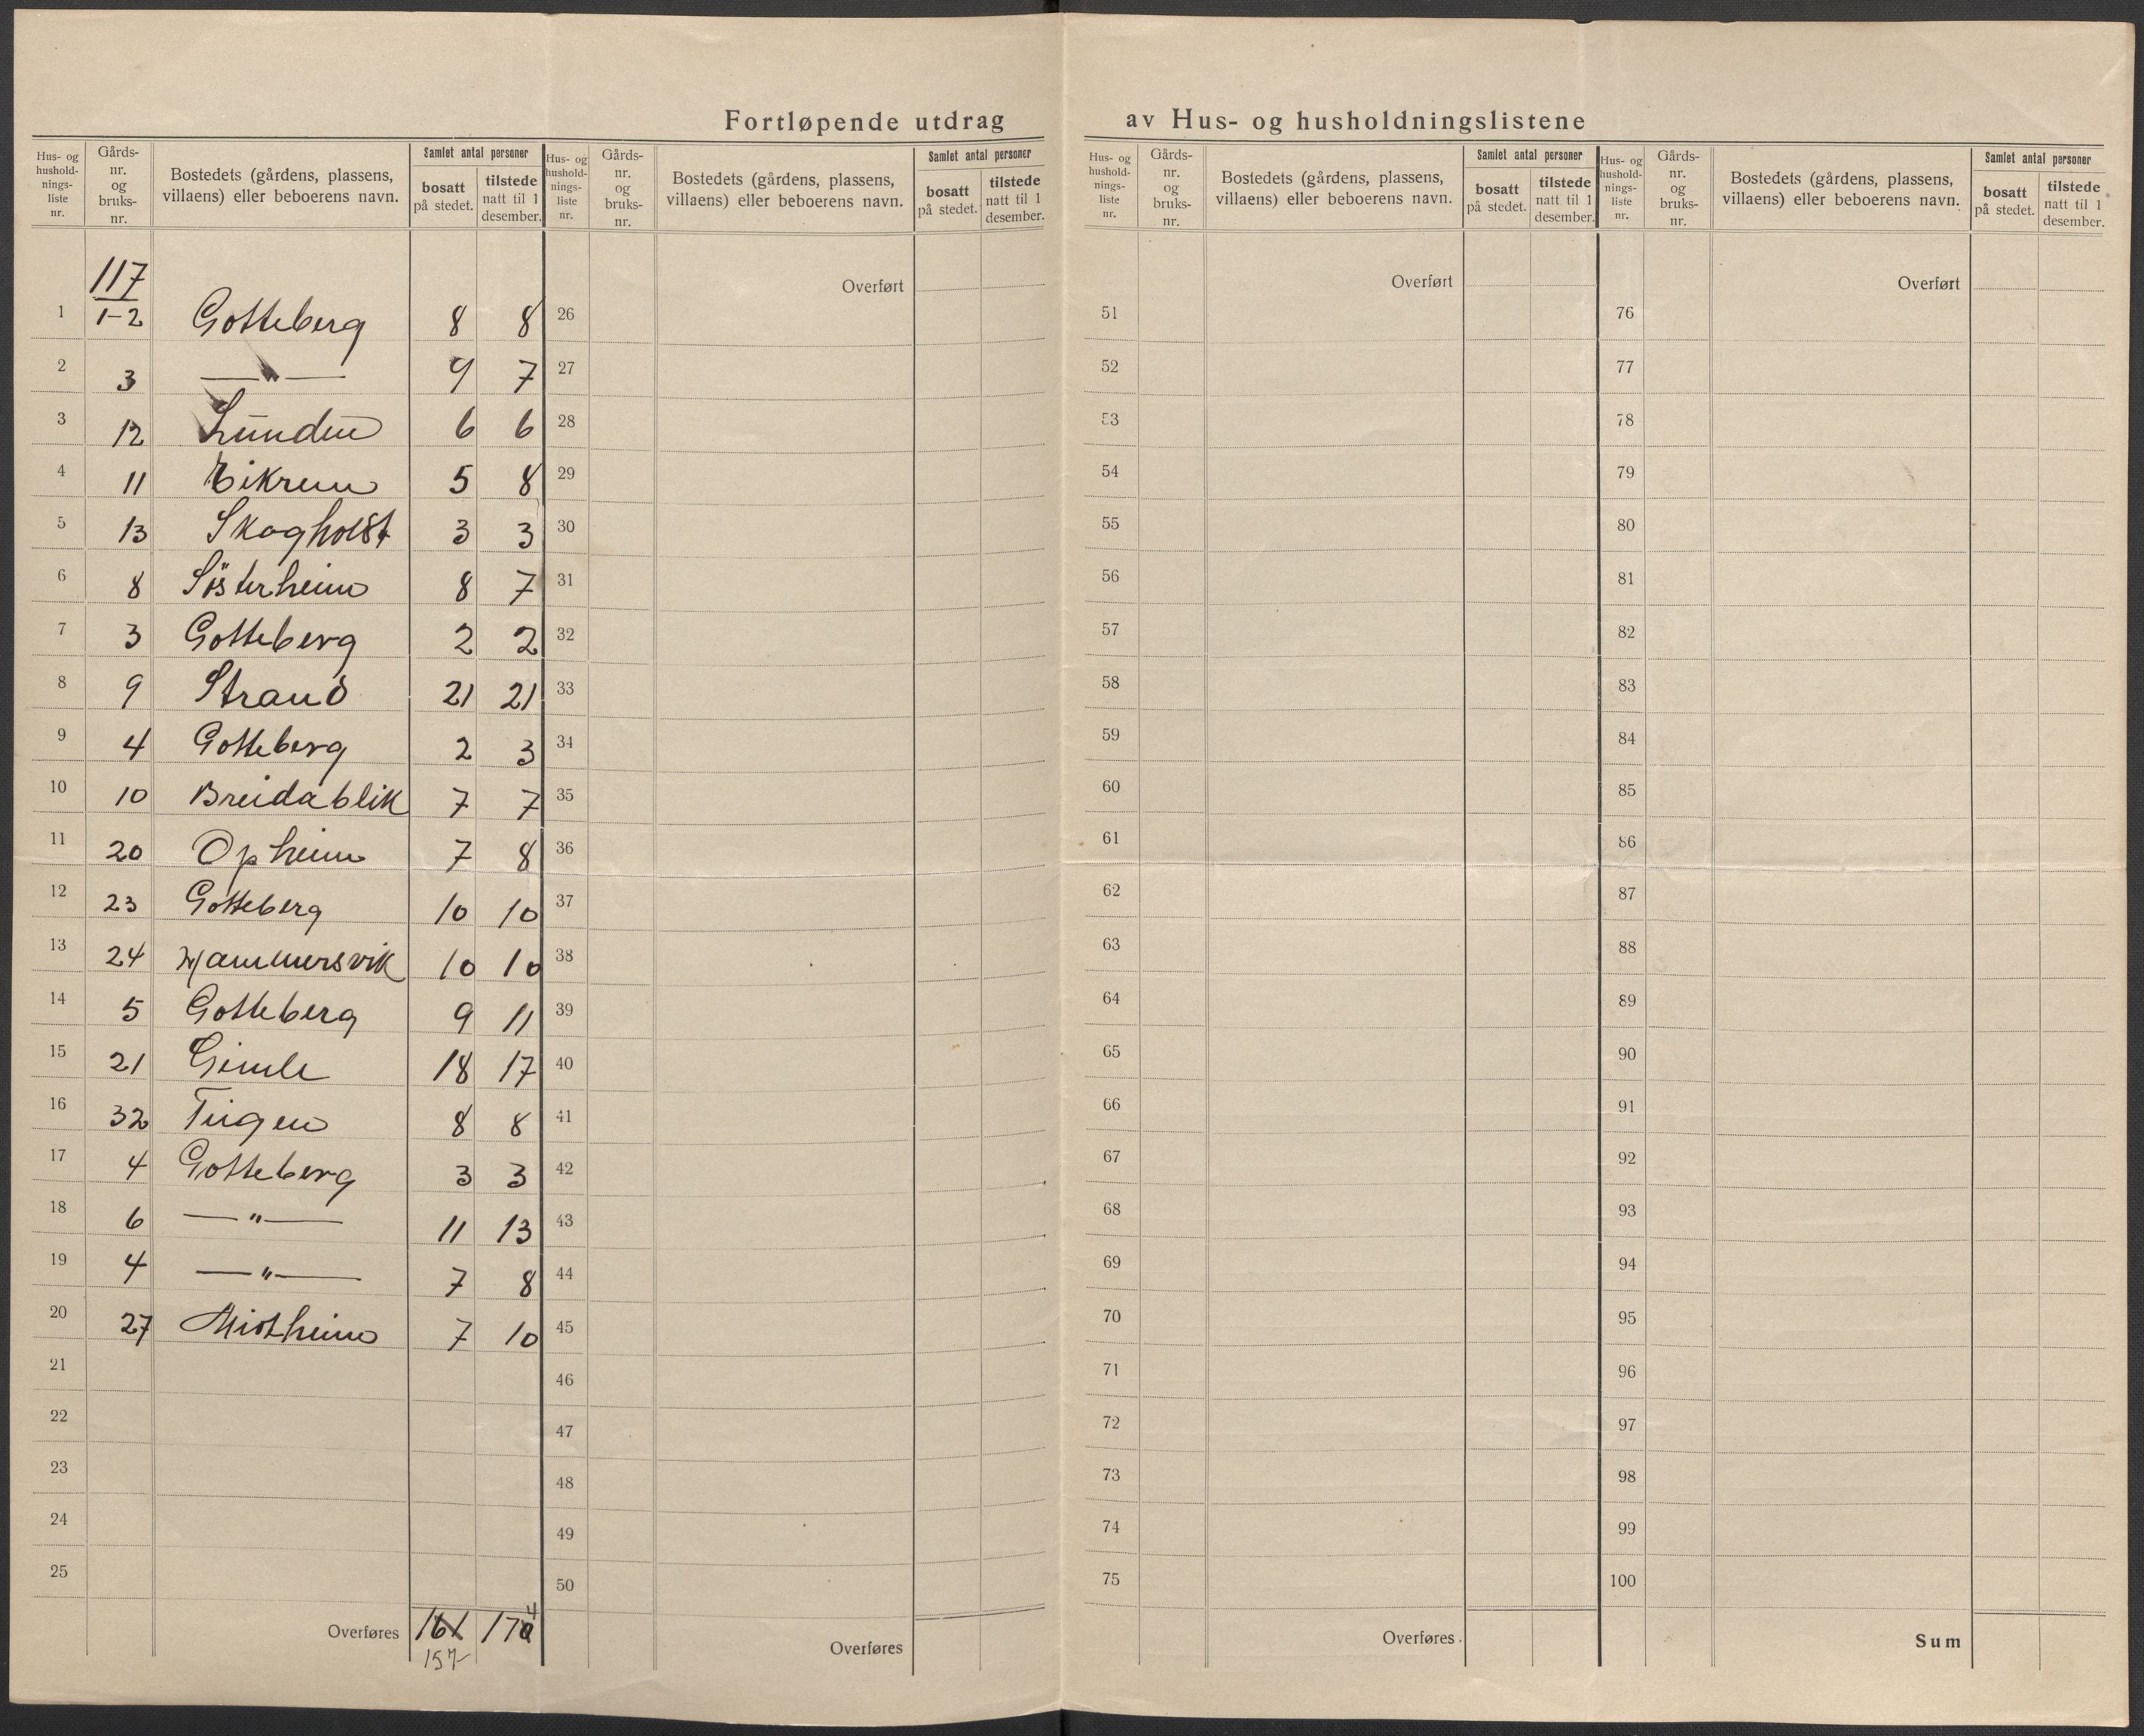 Fortløpende utdrag av Hus- og husholdningslistene
Hus- og husholdnings-liste nr. | Gårds-nr. og bruks-nr. | Bostedets (gårdens, plassens, villaens) eller beboerens navn. | Samlet antal personer bosatt på stedet. | tilstede natt til 1 desember.
117
1 1-2 Gotteberg 8 8
2 3 —"— 9 7
3 12 Lunden 6 6
4 11 Eikrem 5 8
5 13 Skogholst 3 3
6 8 Sösterheim 8 7
7 3 Gotteberg 2 2
8 9 Strand 21 21
9 4 Gotteberg 2 3
10 10 Breidablik 7 7
11 20 Opheim 7 8
12 23 Gotteberg 10 10
13 24 Hammersvik 10 10
14 5 Gotteberg 9 11
15 21 Gimle 18 17
16 32 8 8
17 4 Gotteberg 3 3
18 6 —"— 11 13
19 4 —"— 7 8
20 27 7 10
21
22
23
24
25
Overføres 161 170 4
157
Hus- og husholdnings-liste nr. | Gårds-nr. og bruks-nr. | Bostedets (gårdens, plassens, villaens) eller beboerens navn. | Samlet antal personer bosatt på stedet. | tilstede natt til 1 desember.
Overført
26
27
28
29
30
31
32
33
34
35
36
37
38
39
40
41
42
43
44
45
46
47
48
49
50
Overføres
Hus- og husholdnings-liste nr. | Gårds-nr. og bruks-nr. | Bostedets (gårdens, plassens, villaens) eller beboerens navn. | Samlet antal personer bosatt på stedet. | tilstede natt til 1 desember.
Overført
51
52
53
54
55
56
57
58
59
60
61
62
63
64
65
66
67
68
69
70
71
72
73
74
75
Overføres
Hus- og husholdnings-liste nr. | Gårds-nr. og bruks-nr. | Bostedets (gårdens, plassens, villaens) eller beboerens navn. | Samlet antal personer bosatt på stedet. | tilstede natt til 1 desember.
Overført
76
77
78
79
80
81
82
83
84
85
86
87
88
89
90
91
92
93
94
95
96
97
98
99
100
Sum